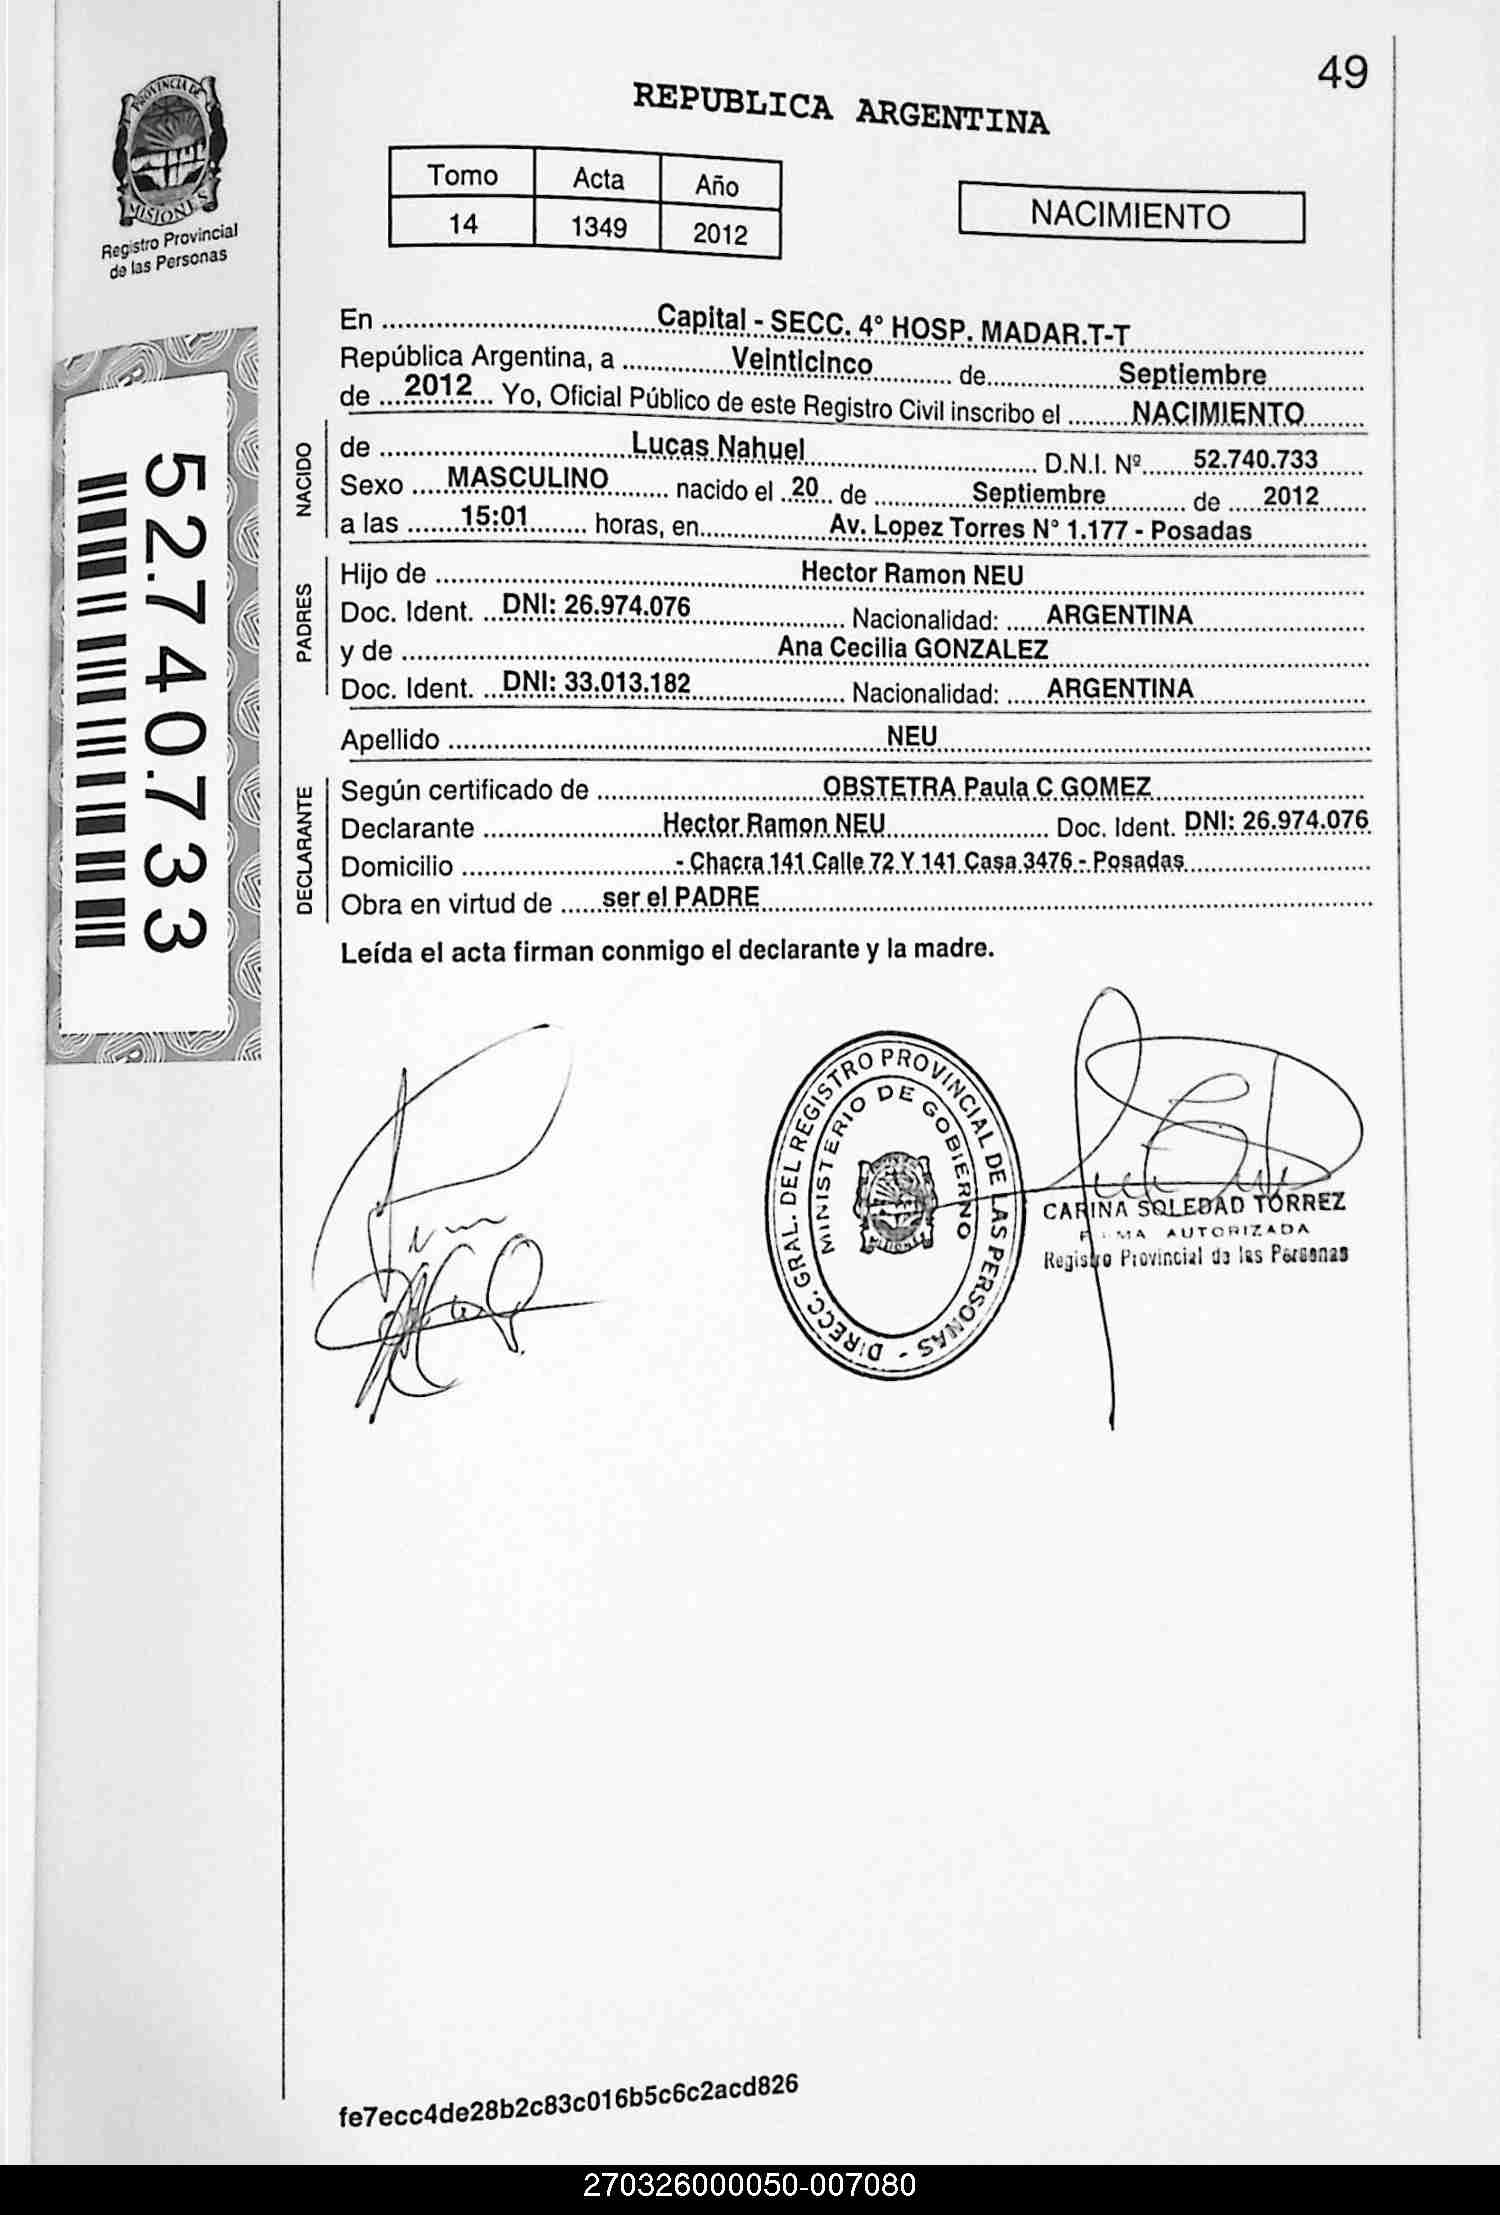 49
PROVINCIA DE
MISIONES
Registro Provincial
de las Personas
REPUBLICA ARGENTINA
Tomo Acta Año
14 1349 2012
NACIMIENTO
52.740.733
En ........ Capital - SECC. 4° HOSP. MADAR.T-T ........
República Argentina, a ........ Veinticinco ........ de ........ Septiembre ........
de .... 2012 .... Yo, Oficial Público de este Registro Civil inscribo el ........ NACIMIENTO ........
NACIDO
de ........ Lucas Nahuel ........ D.N.I. Nº ...... 52.740.733 ......
Sexo .... MASCULINO ........ nacido el .. 20 .. de ........ Septiembre ........ de .... 2012 ......
a las ....... 15:01 ........ horas, en ........ Av. Lopez Torres N° 1.177 - Posadas ........
PADRES
Hijo de ........ Hector Ramon NEU ........
Doc. Ident. ... DNI: 26.974.076 ........ Nacionalidad: ..... ARGENTINA ........
y de ........ Ana Cecilia GONZALEZ ........
Doc. Ident. ... DNI: 33.013.182 ........ Nacionalidad: ..... ARGENTINA ........
Apellido ........ NEU ........
DECLARANTE
Según certificado de ........ OBSTETRA Paula C GOMEZ ........
Declarante ........ Hector Ramon NEU ........ Doc. Ident. DNI: 26.974.076
Domicilio ........ - Chacra 141 Calle 72 Y 141 Casa 3476 - Posadas ........
Obra en virtud de ..... ser el PADRE ........
Leída el acta firman conmigo el declarante y la madre.
DIRECC. GRAL. DEL REGISTRO PROVINCIAL DE LAS PERSONAS -
MINISTERIO DE GOBIERNO
CARINA SOLEDAD TORREZ
AUTORIZADA
Registro Provincial de las Personas
fe7ecc4de28b2c83c016b5c6c2acd826
270326000050-007080